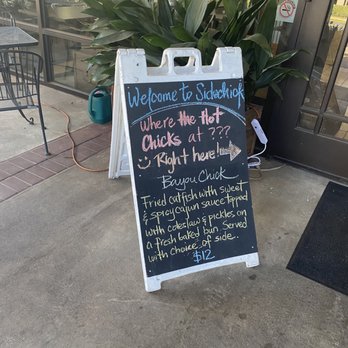 Welcome to Sidechick
Where the Hot
Chicks at ???
Right here!
Bayou Chick
Fried catfish with sweet
& spicy cajun sauce topped
with coleslaw & pickles, on
a fresh baked bun. Served
with choice of side.
$12